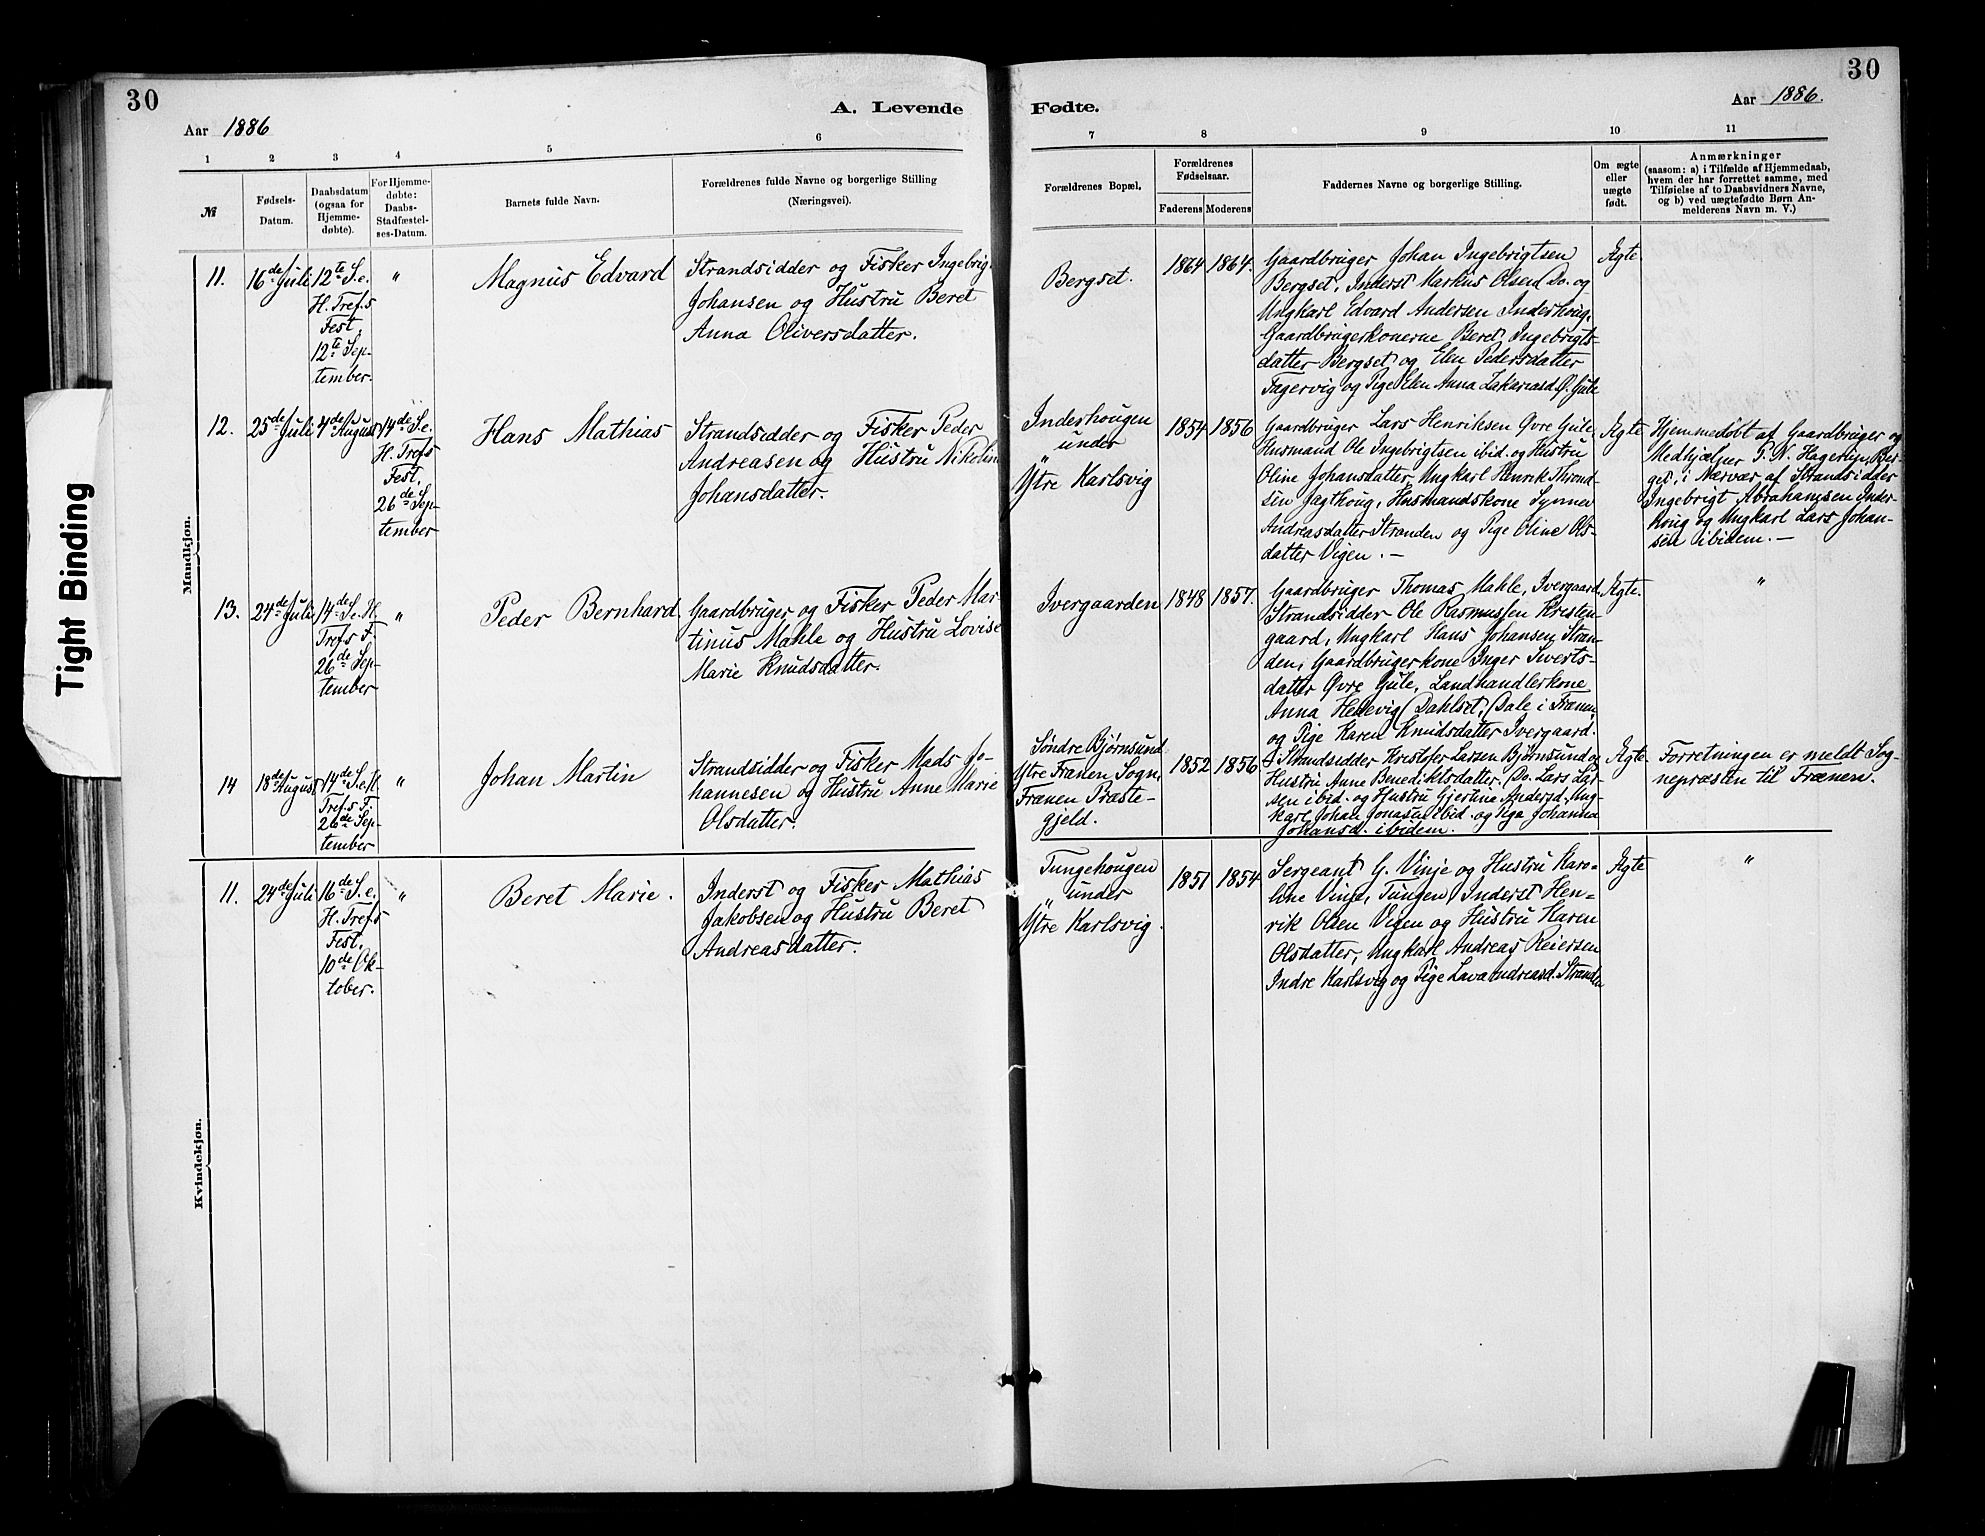 30
A. Levende
Aar 1886
1 2 3 4 5 6
№
Fødsels-
Datum.
Daabsdatum
(ogsaa for
Hjemme-
døbte).
For Hjemme-
døbte:
Daabs-
Stadfæstel-
ses-Datum.
Barnets fulde Navn.
Forældrenes fulde Navne og borgerlige Stilling
(Næringsvei).
Tight Binding
Mandkjøn.
11.
16de Juli
12te S.e.
H. Tref.s
Fest,
12te Sep-
tember.
"
Magnus Edvard
Strandsidder og Fisker Ingebrigt
Johansen og Hustru Beret
Anna Oliversdatter.
12.
25de Juli
4de August
14de S.e.
H. Tref.s
Fest,
26de Sep-
tember
Hans Mathias
Strandsidder og Fisker Peder
Andreasen og Hustru Nikoline
Johansdatter.
13.
24de Juli
14de S.e.H.
Tref.s F.
26de Sep-
tember
"
Peder Bernhard
Gaardbruger og Fisker Peder Mar-
tinus Mahle og Hustru Lovise
Marie Knudsdatter.
14
18de August
14de S.e.H.
Tref.s F.
26de Sep-
tember
"
Johan Martin
Strandsidder og Fisker Mads Jo-
hannesen og Hustru Anne Marie
Olsdatter.
Kvindekjøn.
11.
24de Juli
16de S.e.
H. Tref.s
Fest,
10de Ok-
tober.
"
Beret Marie.
Inderst og Fisker Mathias
Jakobsen og Hustru Beret
Andreasdatter.
30
Fødte.
Aar 1886.
7 8 9 10 11
Forældrenes Bopæl.
Forældrenes
Fødselsaar.
Faderens Moderens
Faddernes Navne og borgerlige Stilling.
Om ægte
eller
uægte
født.
Anmærkninger
(saasom: a) i Tilfælde af Hjemmedaab,
hvem der har forrettet samme, med
Tilføielse af to Daabsvidners Navne,
og b) ved uægtefødte Børn An-
melderens Navn m. V.)
Bergset.
1864 1864.
Gaardbruger Johan Ingebrigtsen
Bergset, Inderst Markus Olsen Do. og
Ungkarl Edvard Andersen Inderhoug,
Gaardbrugerkonerne Beret Ingebrigts-
datter Bergset og Elen Pedersdatter
Fagervig og Pige Elen Anna Zakariasd. Ø. Gule
Ægte
Inderhougen
under
Ytre Karlsvig
1854 1856
Gaardbruger Lars Henriksen Øvre Gule,
Husmand Ole Ingebrigtsen ibid. og Hustru
Oline Johansdatter, Ungkarl Henrik Thrond-
sen Jagthoug, Husmandskone Synnev
Andreasdatter Stranden og Pige Oline Ols-
datter Vigen. —
Ægte
Hjemmedøbt af Gaardbruger og
Medhjælper P. N. Hagerup, Ber-
get, i Nærvær af Strandsidder
Ingebrigt Abrahamsen Inder-
houg og Ungkarl Lars Johan-
sen ibidem. —
Ivergaarden
1848 1857.
Gaardbruger Thomas Mahle, Ivergaard,
Strandsidder Ole Rasmussen Kristen-
gaard, Ungkarl Hans Johansen Stran-
den, Gaardbrugerkone Inger Iverts-
datter Øvre Gule, Landhandlerkone
Anna Hedevig Dahlset, (Dale i Frænen,
og Pige Karen Knudsdatter Ivergaard.
Ægte.
"
Søndre Bjørnsund
Ytre Frænen Sogn,
Frænen Præste-
gjeld.
1852 1856
Strandsidder Kristofer Larsen Bjørnsund og
Hustru Anne Benediktsdatter, Do. Lars Lar-
sen ibid. og Hustru Gjertine Andersd., Ung-
karl Johan Jonasen ibid. og Pige Johanna
Johansd. ibidem.
Ægte
Forretningen er meldt Sog-
nepræsten til Frænen.
Tungehougen
under
Ytre Karlsvig.
1851 1854
Sergeant G. Vinje og Hustru Karo-
line Vinje, Tungen, Inderst Hen-
rik Olsen Vigen og Hustru Karen
Olsdatter, Ungkarl Andreas Reiersen
Indre Karlsvig og Pige Lava Andreasd. Stranden
Ægte
"